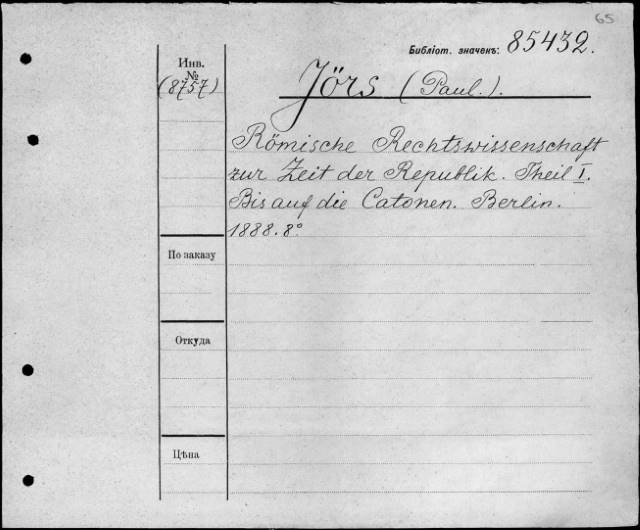 65
Библіот. значекъ: 85432.
Инв.
№
(8757)
Jörs (Paul.).
Römische Rechtswissenschaft
zur Zeit der Republik. Theil I.
Bis auf die Catonen. Berlin.
1888. 8°
По заказу
Откуда
Цѣна